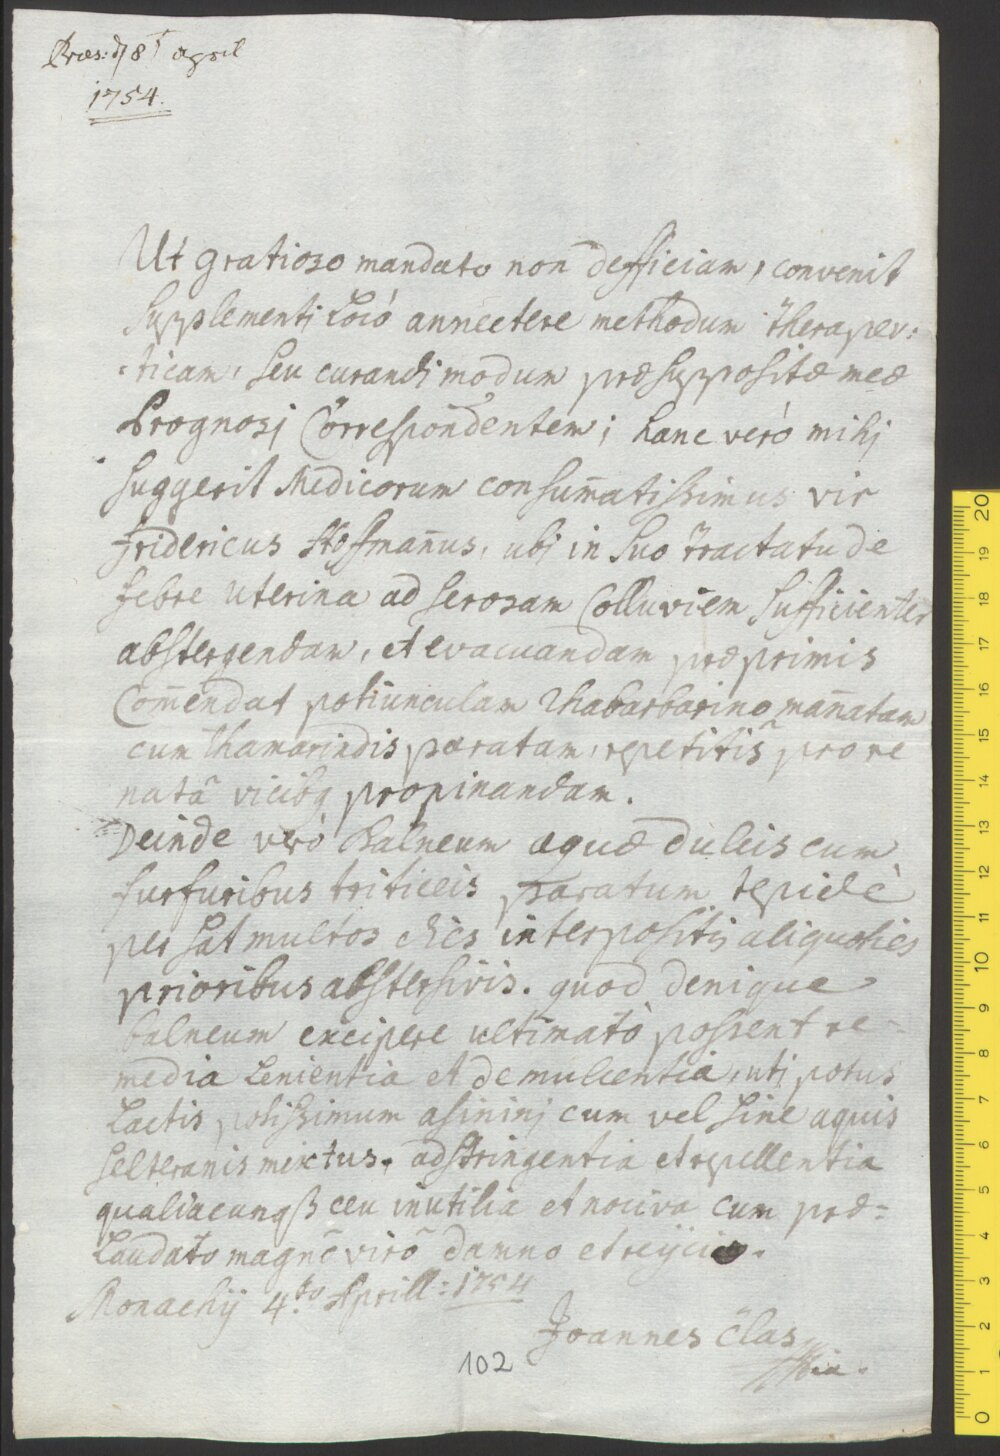 Præs: d 8t april
1754.
Ut gratioso mandato non defficiam, convenit
Supplementi locò annectere methodum therapev:
:ticam, seu curandi modum præsuppositæ meæ
Prognosi Correspondentem; hanc verò mihj
suggerit Medicorum consum̄atissimus vir
Fridericus Hofman̄us, ubj in suo tractatu de
febre uterina ad serosam Colluviem sufficienter
abstergendam, et evacuandam præprimis
Com̄endat potiunculam Rhabarbarino man̄atam
cum thamarindis paratam, repetitis pro re
natâ vicibq propinandam.
Deinde verò Balneum aquæ dulcis cum
furfuribus triticeis paratum tepidè
per sat multos dies interpositis aliquoties
prioribus abstersivis. quod denique
balneum excipere ultimatò possent re=
media Lenientia et demulcentia, utj potus
Lactis potissimum asininj cum vel sine aquis
selteranis mixtus. adstringentia et repellentia
qualiacunqß ceu inutilia et nociva cum præ=
Laudato magnô virô damno et reijcio.
Monachij 4.to Aprill: 1754
Joannes Elas
102